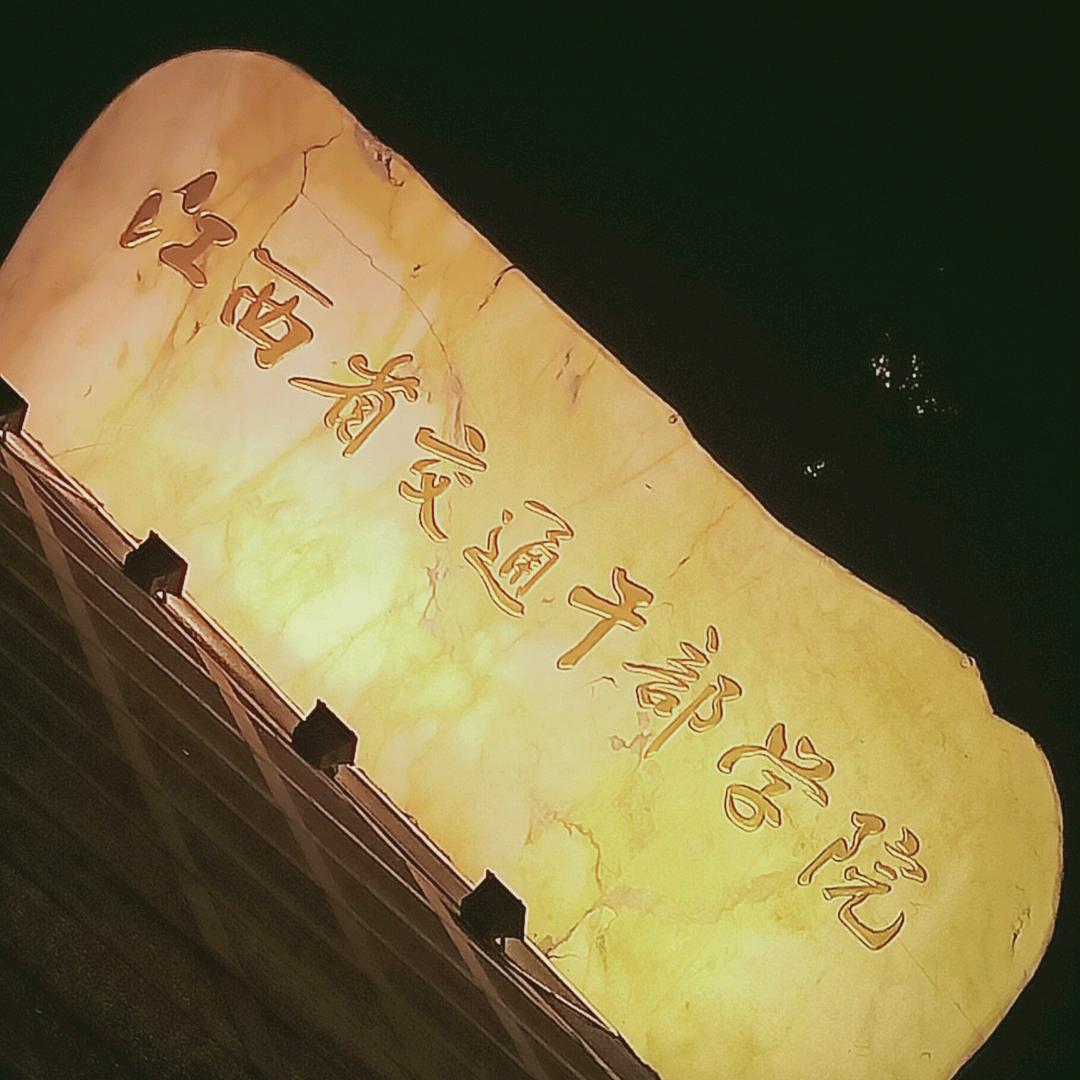 江西省交通干部学院